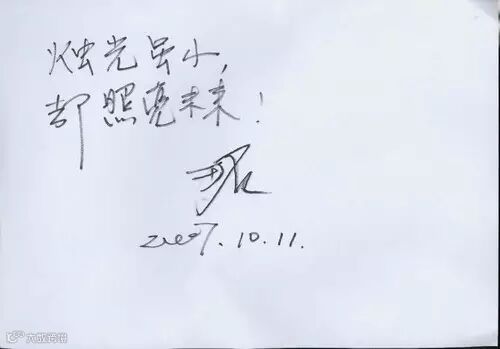 烛光虽小，
却照亮未来！
2007.10.11.